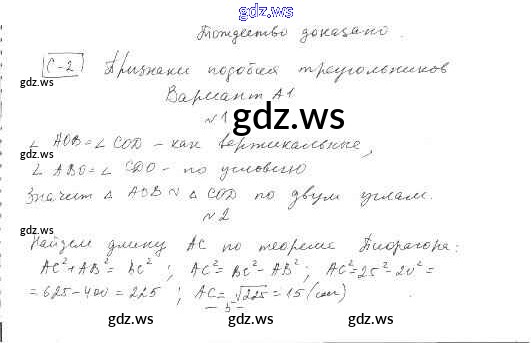 gdz.ws
Тождество доказано.
С-2 Признаки подобия треугольников
gdz.ws
Вариант А1
gdz.ws
№1
gdz.ws
∠ AOB = ∠ COD - как вертикальные,
gdz.ws
∠ ABO = ∠ CDO - по условию
Значит △ AOB ~ △ COD по двум углам.
№2
gdz.ws
Найдем длину AC по теореме Пифагора:
AC²+AB² = BC² ; AC² = BC² - AB² ; AC² = 25² - 20² =
= 625 - 400 = 225 ; AC = √225 = 15 (см)
- 5 -
gdz.ws gdz.ws gdz.ws